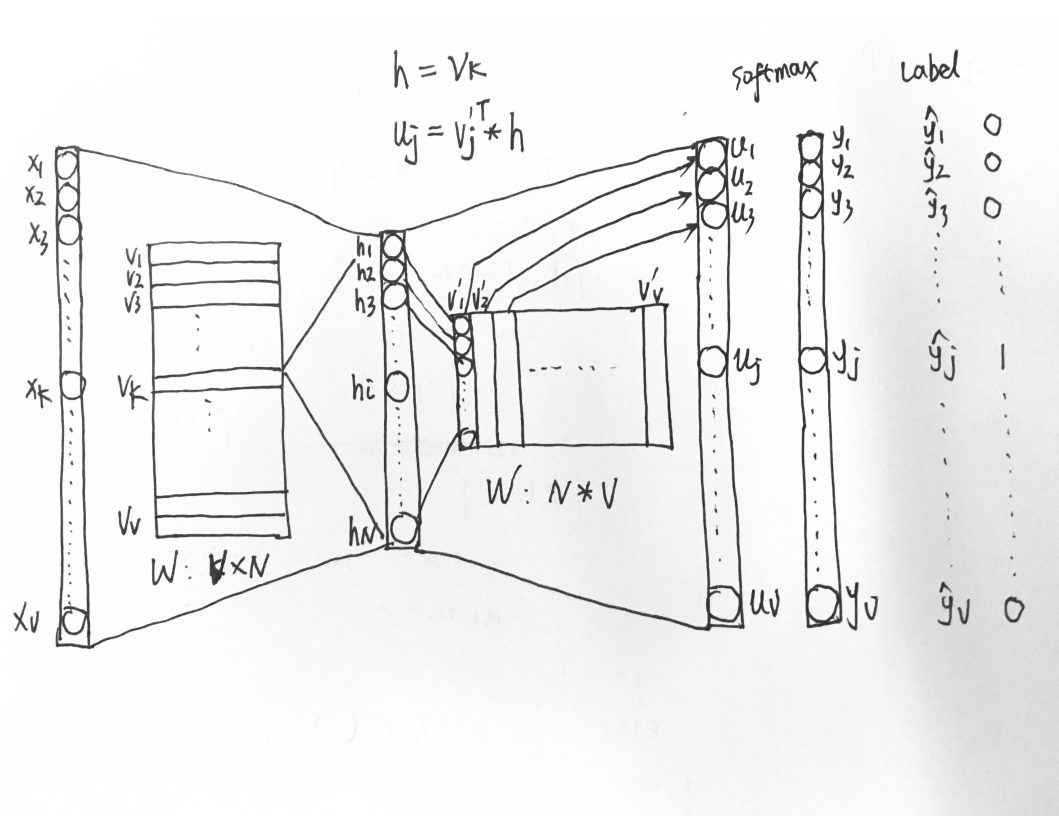 h = Vk
uj = vj'^T * h
softmax
Label
x1
x2
x3
xk
xv
v1
v2
v3
vk
Vv
W: V×N
h1
h2
h3
hi
hN
v1' v2' v'v
W: N*V
u1
u2
u3
uj
uv
y1
y2
y3
yj
yv
ŷ1 0
ŷ2 0
ŷ3 0
ŷj 1
ŷv 0